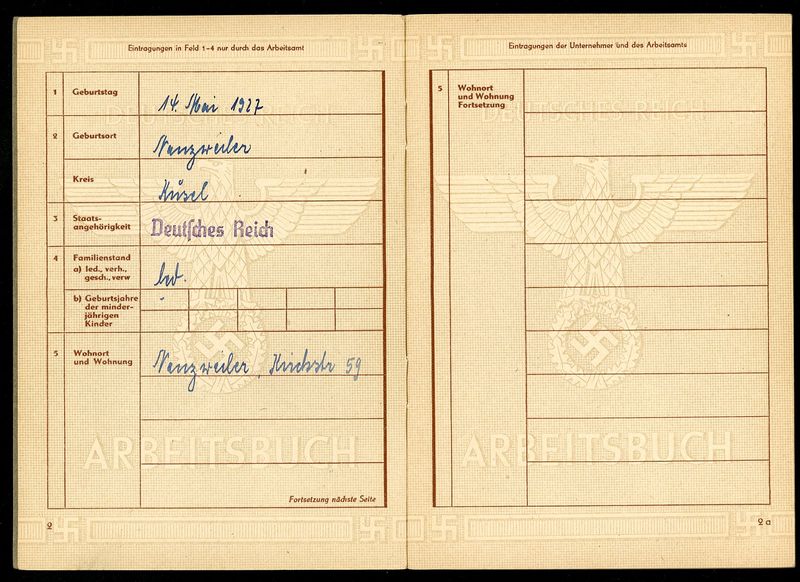 Eintragungen in Feld 1-4 nur durch das Arbeitsamt
DEUTSCHES REICH
1 Geburtstag 14. Mai 1927
2 Geburtsort Nanzweiler
Kreis Kusel
3 Staats-
angehörigkeit Deutsches Reich
4 Familienstand
a) led., verh.,
gesch., verw led.
b) Geburtsjahre
der minder-
jährigen
Kinder
5 Wohnort
und Wohnung Nanzweiler, Kirchstr 59
ARBEITSBUCH
Fortsetzung nächste Seite
2
Eintragungen der Unternehmer und des Arbeitsamts
5 Wohnort
und Wohnung
Fortsetzung
DEUTSCHES REICH
ARBEITSBUCH
2a